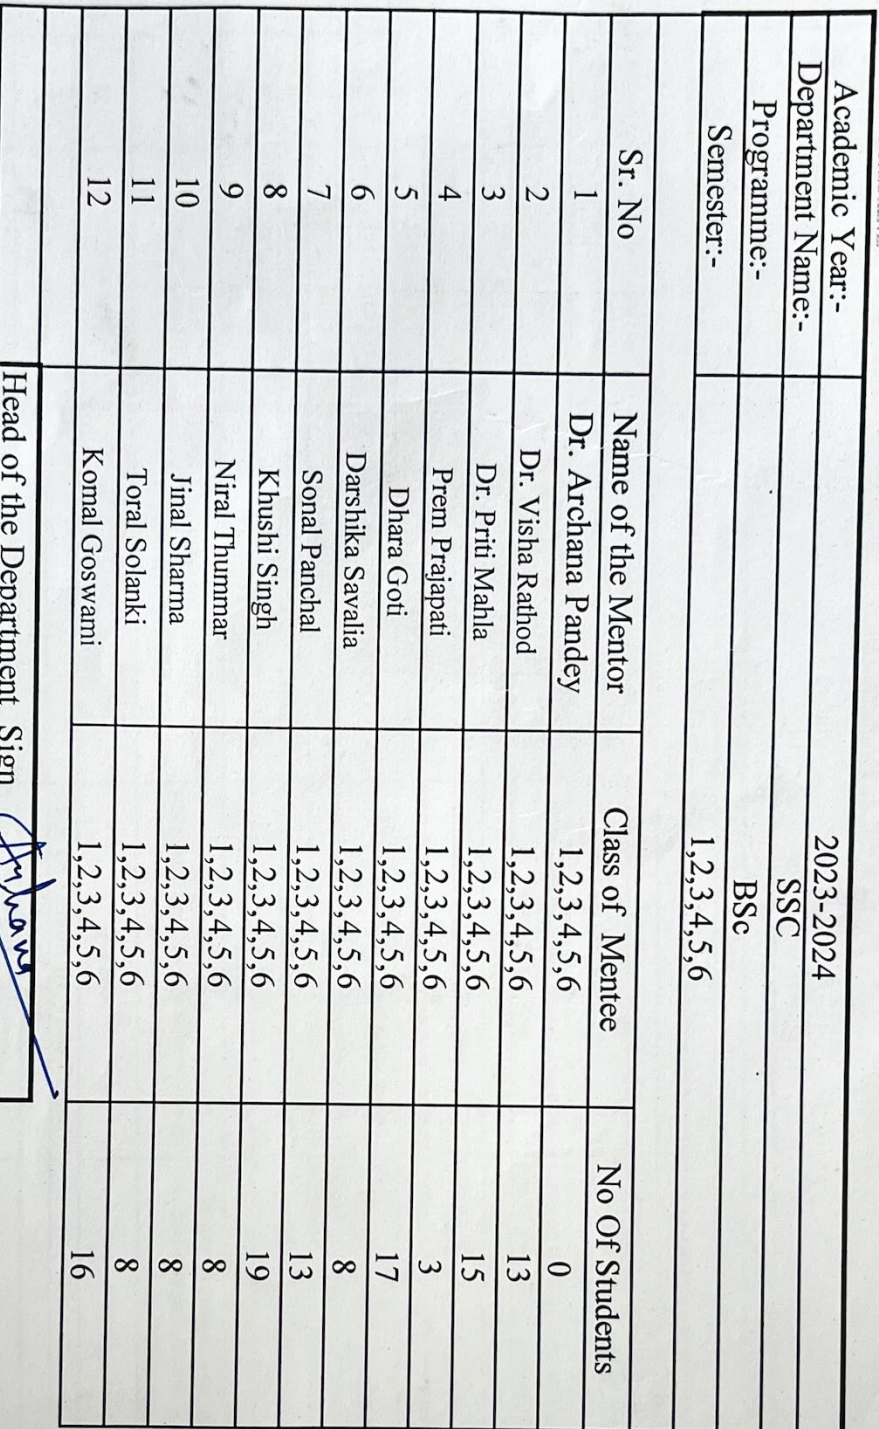 Academic Year:- 2023-2024
Department Name:- SSC
Programme:- BSc
Semester:- 1,2,3,4,5,6
Sr. No Name of the Mentor Class of Mentee No Of Students
1 Dr. Archana Pandey 1,2,3,4,5,6 0
2 Dr. Visha Rathod 1,2,3,4,5,6 13
3 Dr. Priti Mahla 1,2,3,4,5,6 15
4 Prem Prajapati 1,2,3,4,5,6 3
5 Dhara Goti 1,2,3,4,5,6 17
6 Darshika Savalia 1,2,3,4,5,6 8
7 Sonal Panchal 1,2,3,4,5,6 13
8 Khushi Singh 1,2,3,4,5,6 19
9 Niral Thummar 1,2,3,4,5,6 8
10 Jinal Sharma 1,2,3,4,5,6 8
11 Toral Solanki 1,2,3,4,5,6 8
12 Komal Goswami 1,2,3,4,5,6 16
Head of the Department Sign